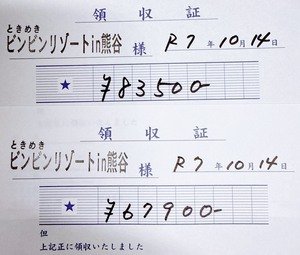 領収証
ときめき
ピンピンリゾートin熊谷 様 R7年10月14日
★ ¥83500-
領収証
ときめき
ピンピンリゾートin熊谷 様 R7年10月14日
★ ¥67900-
但
上記正に領収いたしました